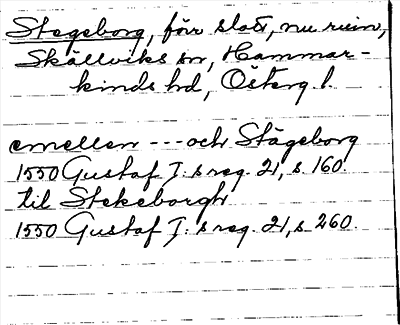 Stegeborg, förr slott, nu ruin,
Skällviks sn, Hammar-
kinds hd, Österg. l.
emellen --- och Stägeborg
1550 Gustaf I:s reg. 21, s. 160
til Stekeborgh
1550 Gustaf I:s reg. 21, s. 260.